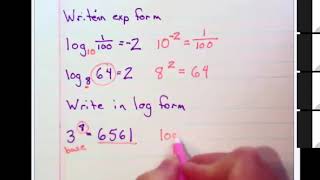 Write in exp form
log₁₀ 1/100 = -2 10⁻² = 1/100
log₈ 64 = 2 8² = 64
Write in log form
3⁸ = 6561 log
base